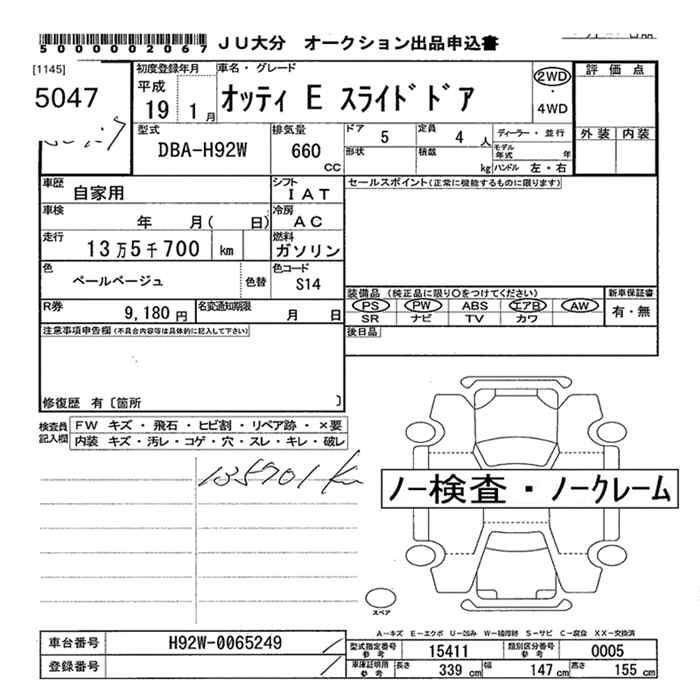 5000002067 JU大分 オークション出品申込書
[1145]
5047
初度登録年月 平成 19 1月
車名・グレード オッティ E スライドドア
2WD ・ 4WD
評価点
外装 内装
型式 DBA-H92W
排気量 660 CC
ドア 5 定員 4 人
形状 積載 kg
ディーラー・並行
モデル年式 年
ハンドル 左・右
車歴 自家用
シフト IAT
セールスポイント(正常に機能するものに限ります)
車検 年 月( 日)
冷房 AC
走行 13万5千700 km
燃料 ガソリン
色 ペールベージュ 色替
色コード S14
装備品(純正品に限り〇をつけてください)
新車保証書
PS PW ABS エアB AW
SR ナビ TV カワ
有・無
R券 9,180円
名変通知期限 月 日
後日品
注意事項申告欄(不具合内容等は具体的に記入して下さい)
修復歴 有〔箇所 〕
検査員記入欄
FW キズ・飛石・ヒビ割・リペア跡・×要
内装 キズ・汚レ・コゲ・穴・スレ・キレ・破レ
135701km
ノー検査・ノークレーム
スペア
A-キズ E-エクボ U-凹み W-補修跡 S-サビ C-腐食 XX-交換済
車台番号 H92W-0065249
登録番号
型式指定番号参考 15411
類別区分番号参考 0005
車庫証明用参考 長さ 339 cm 幅 147 cm 高さ 155 cm